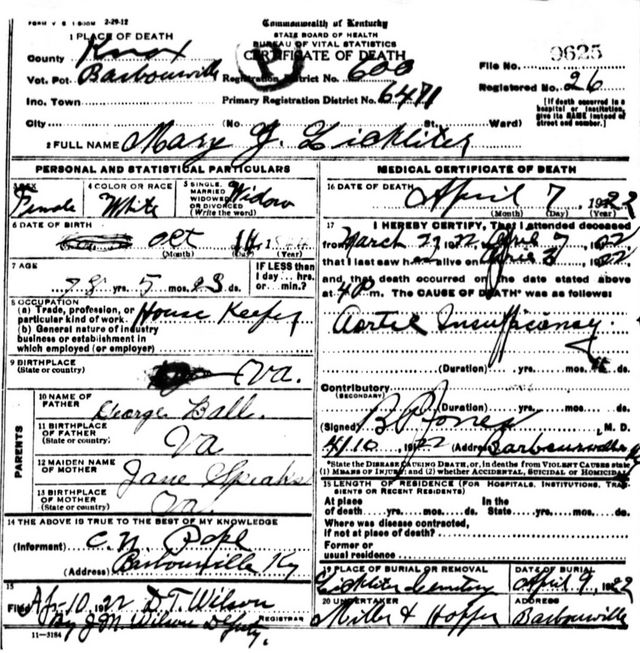 FORM V. S. 1-500M 2-29-12
Commonwealth of Kentucky
STATE BOARD OF HEALTH
BUREAU OF VITAL STATISTICS
CERTIFICATE OF DEATH
1 PLACE OF DEATH
County Knox
Vot. Pct Barbourville Registration District No. 600
File No. 9625
Inc. Town Primary Registration District No. 6471
Registered No. 26
City (No. St. Ward)
[If death occurred in a hospital or institution, give its NAME instead of street and number.]
2 FULL NAME Mary J. Lickliter
PERSONAL AND STATISTICAL PARTICULARS
3 SEX Female
4 COLOR OR RACE White
5 SINGLE, MARRIED, WIDOWED OR DIVORCED (Write the word) Widow
6 DATE OF BIRTH Oct 14 1
(Month) (Day) (Year)
7 AGE
78 yrs. 5 mos. 23 ds.
IF LESS than 1 day... hrs. or min.?
8 OCCUPATION
(a) Trade, profession, or particular kind of work House Keeper
(b) General nature of industry business or establishment in which employed (or employer)
9 BIRTHPLACE
(State or country) Va.
PARENTS
10 NAME OF FATHER George Ball
11 BIRTHPLACE OF FATHER (State or country) Va
12 MAIDEN NAME OF MOTHER Jane Speaks
13 BIRTHPLACE OF MOTHER (State or country) Va.
14 THE ABOVE IS TRUE TO THE BEST OF MY KNOWLEDGE
(Informant) C. N. Pope
(Address) Barbourville Ky
15
Filed Apr 10, 1922 D. T. Wilson
By J M Wilson Deputy REGISTRAR
11-3184
MEDICAL CERTIFICATE OF DEATH
16 DATE OF DEATH April 7 192
(Month) (Day) (Year)
17 I HEREBY CERTIFY, That I attended deceased
from March 1922, April 7, 1922
that I last saw h alive on April 1922
and that death occurred on the date stated above
at 4 P m. The CAUSE OF DEATH* was as follows:
Aortic Insufficiency
(Duration) yrs. mos. ds.
Contributory
(SECONDARY)
(Duration) yrs. mos. ds.
(Signed) B P Jones, M. D.
4/10, 1922 (Address) Barbourville Ky
*State the DISEASE CAUSING DEATH, or, in deaths from VIOLENT CAUSES state
(1) MEANS OF INJURY; and (2) whether ACCIDENTAL, SUICIDAL OR HOMICIDAL
18 LENGTH OF RESIDENCE (FOR HOSPITALS, INSTITUTIONS, TRANSIENTS OR RECENT RESIDENTS)
At place of death yrs. mos. ds. In the State yrs. mos. ds.
Where was disease contracted,
if not at place of death?
Former or usual residence
19 PLACE OF BURIAL OR REMOVAL Lickliter Cemetery
DATE OF BURIAL April 9, 1922
20 UNDERTAKER Miller & Hopper
ADDRESS Barbourville